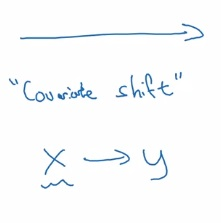 "Covariate shift"
X → y